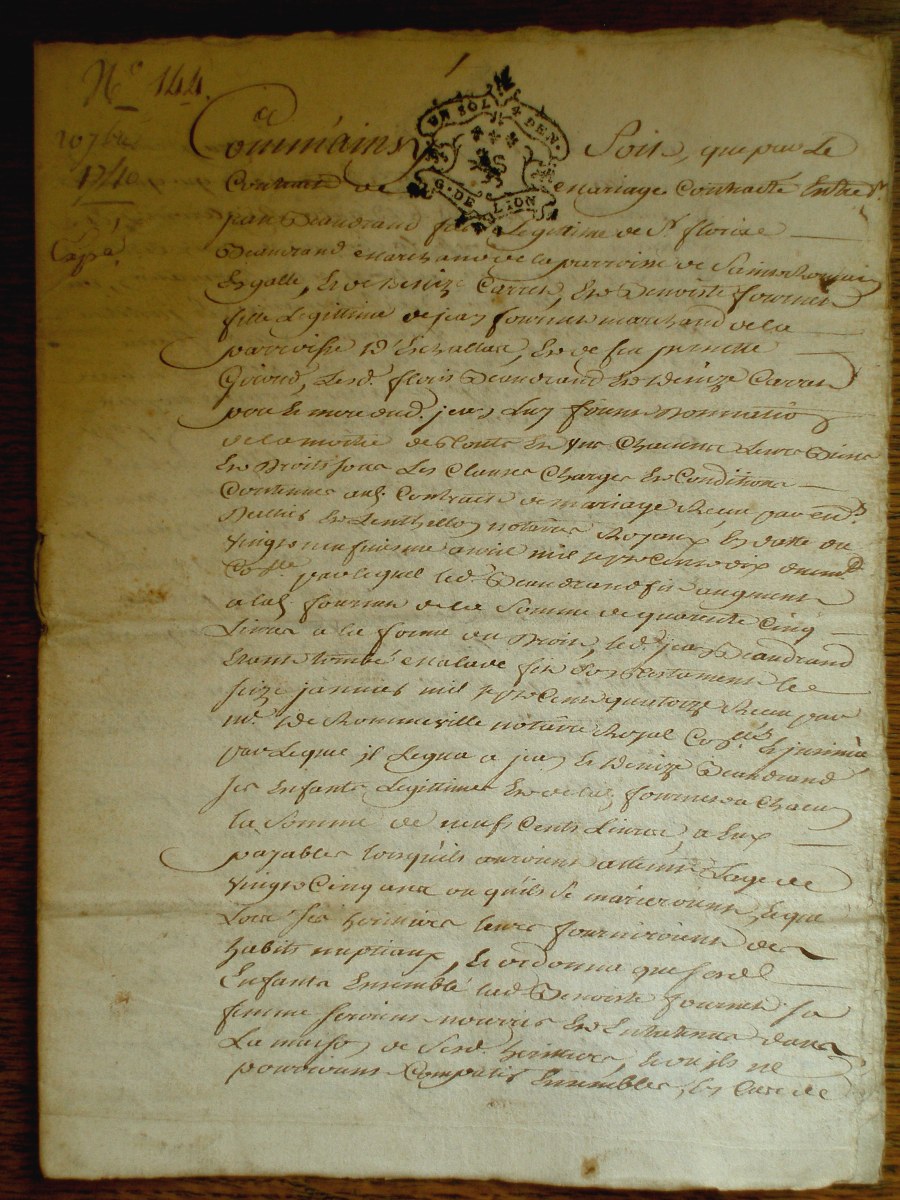 N° 144.
10 7bre
1740
UN SOL 4 DEN.
G. DE LION
Comme ainsy Soit, que par Le
Contract de mariage Contracté Entre Sr.
jean Beaudrand fils Legittime de Sr. floris
Beaudrand marchand de la parroisse de Saint Romain
En galle, Et de Denize Carret, Et Benoiste fournier
fille Legittime de jean fournier marchand de la
parroisse D'Echallas, Et de feu
Giroud, Lesd. floris Beaudrand Et Denize Carret
pour Le more dud. jean Luy firent Donnation
de la moitié de tous Et Uns Chacuns Leurs Biens
Et Droits sous Les Clauses Charges Et Conditions
Contenues aud. Contract de mariage Receu par
notaires Royaux En datte du
vingt neufviesme avril mil sept Cent dix
par lequel led. Beaudrand fit augment
a lad. fournier de la Somme de quarante Cinq
Livres a la forme du Droit, led. jean Beaudrand
Etant tombé malade fit Son testament le
seize janvier mil sept Cent quatorze Receu par
me. De Rommeville notaire Royal
par Lequel jl Legua a jean Et Denize Beaudrand
ses Enfants Legittimes Et de lad. fournier a Chacun
la Somme de neuf Cents Livres, a Eux
payables lorsqu'ils auroient atteint L'age de
vingt Cinq ans ou qu'ils Se marieroient, Et que
Lors Ses heritiers leurs fourniroient des
habits nuptiaux, Et ordonna que sesd.
Enfants Ensemble lad. Benoiste fournier sa
femme seroient nourris Et Entretenus dans
La maison de Sesd. heritiers, Et ou ils ne
pourroient Compatir Ensembles, En Cas de